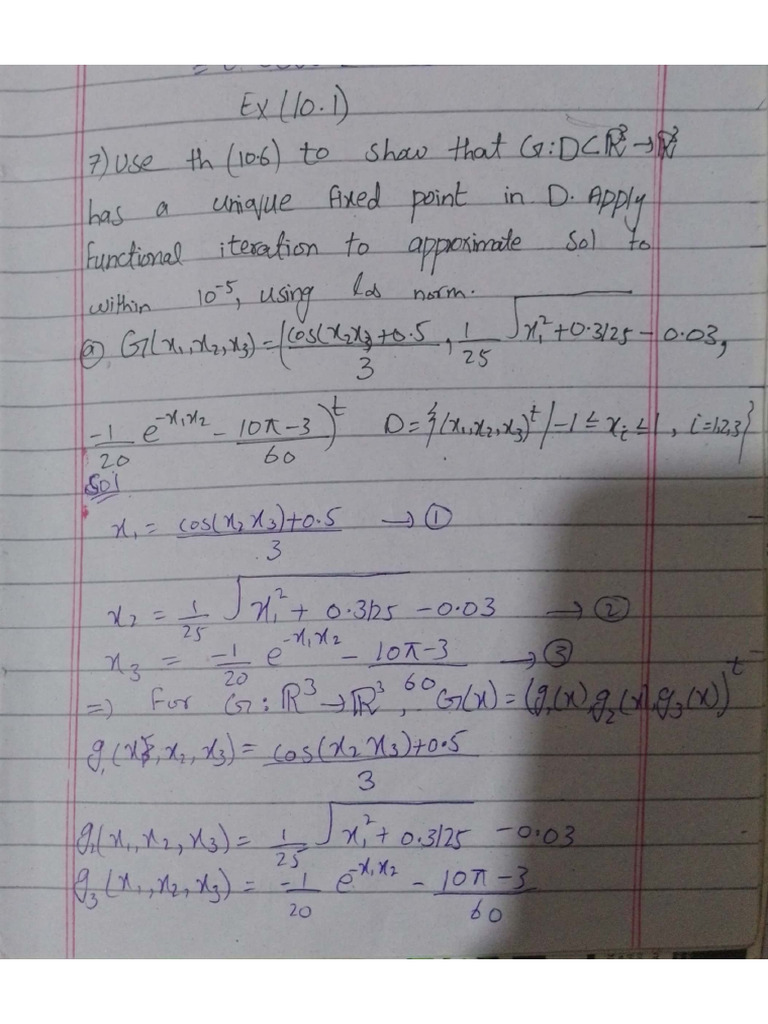 Ex (10.1)
7) Use th (10.6) to show that G: D⊂ℝ³→ℝ³
has a unique fixed point in D. Apply
functional iteration to approximate sol to
within 10⁻⁵, using l∞ norm.
(a) G(x₁,x₂,x₃) = (cos(x₂x₃)+0.5/3, 1/25 √x₁²+0.3125 - 0.03,
-1/20 e^-x₁x₂ - 10π-3/60)^t D = {(x₁,x₂,x₃)^t | -1 ≤ xᵢ ≤ 1, i=1,2,3}
Sol
x₁ = cos(x₂x₃)+0.5/3 → ①
x₂ = 1/25 √x₁²+0.3125 - 0.03 → ②
x₃ = -1/20 e^-x₁x₂ - 10π-3/60 → ③
⇒) For G: ℝ³→ℝ³, G(x) = (g₁(x), g₂(x), g₃(x))^t
g₁(x₁,x₂,x₃) = cos(x₂x₃)+0.5/3
g₂(x₁,x₂,x₃) = 1/25 √x₁²+0.3125 - 0.03
g₃(x₁,x₂,x₃) = -1/20 e^-x₁x₂ - 10π-3/60